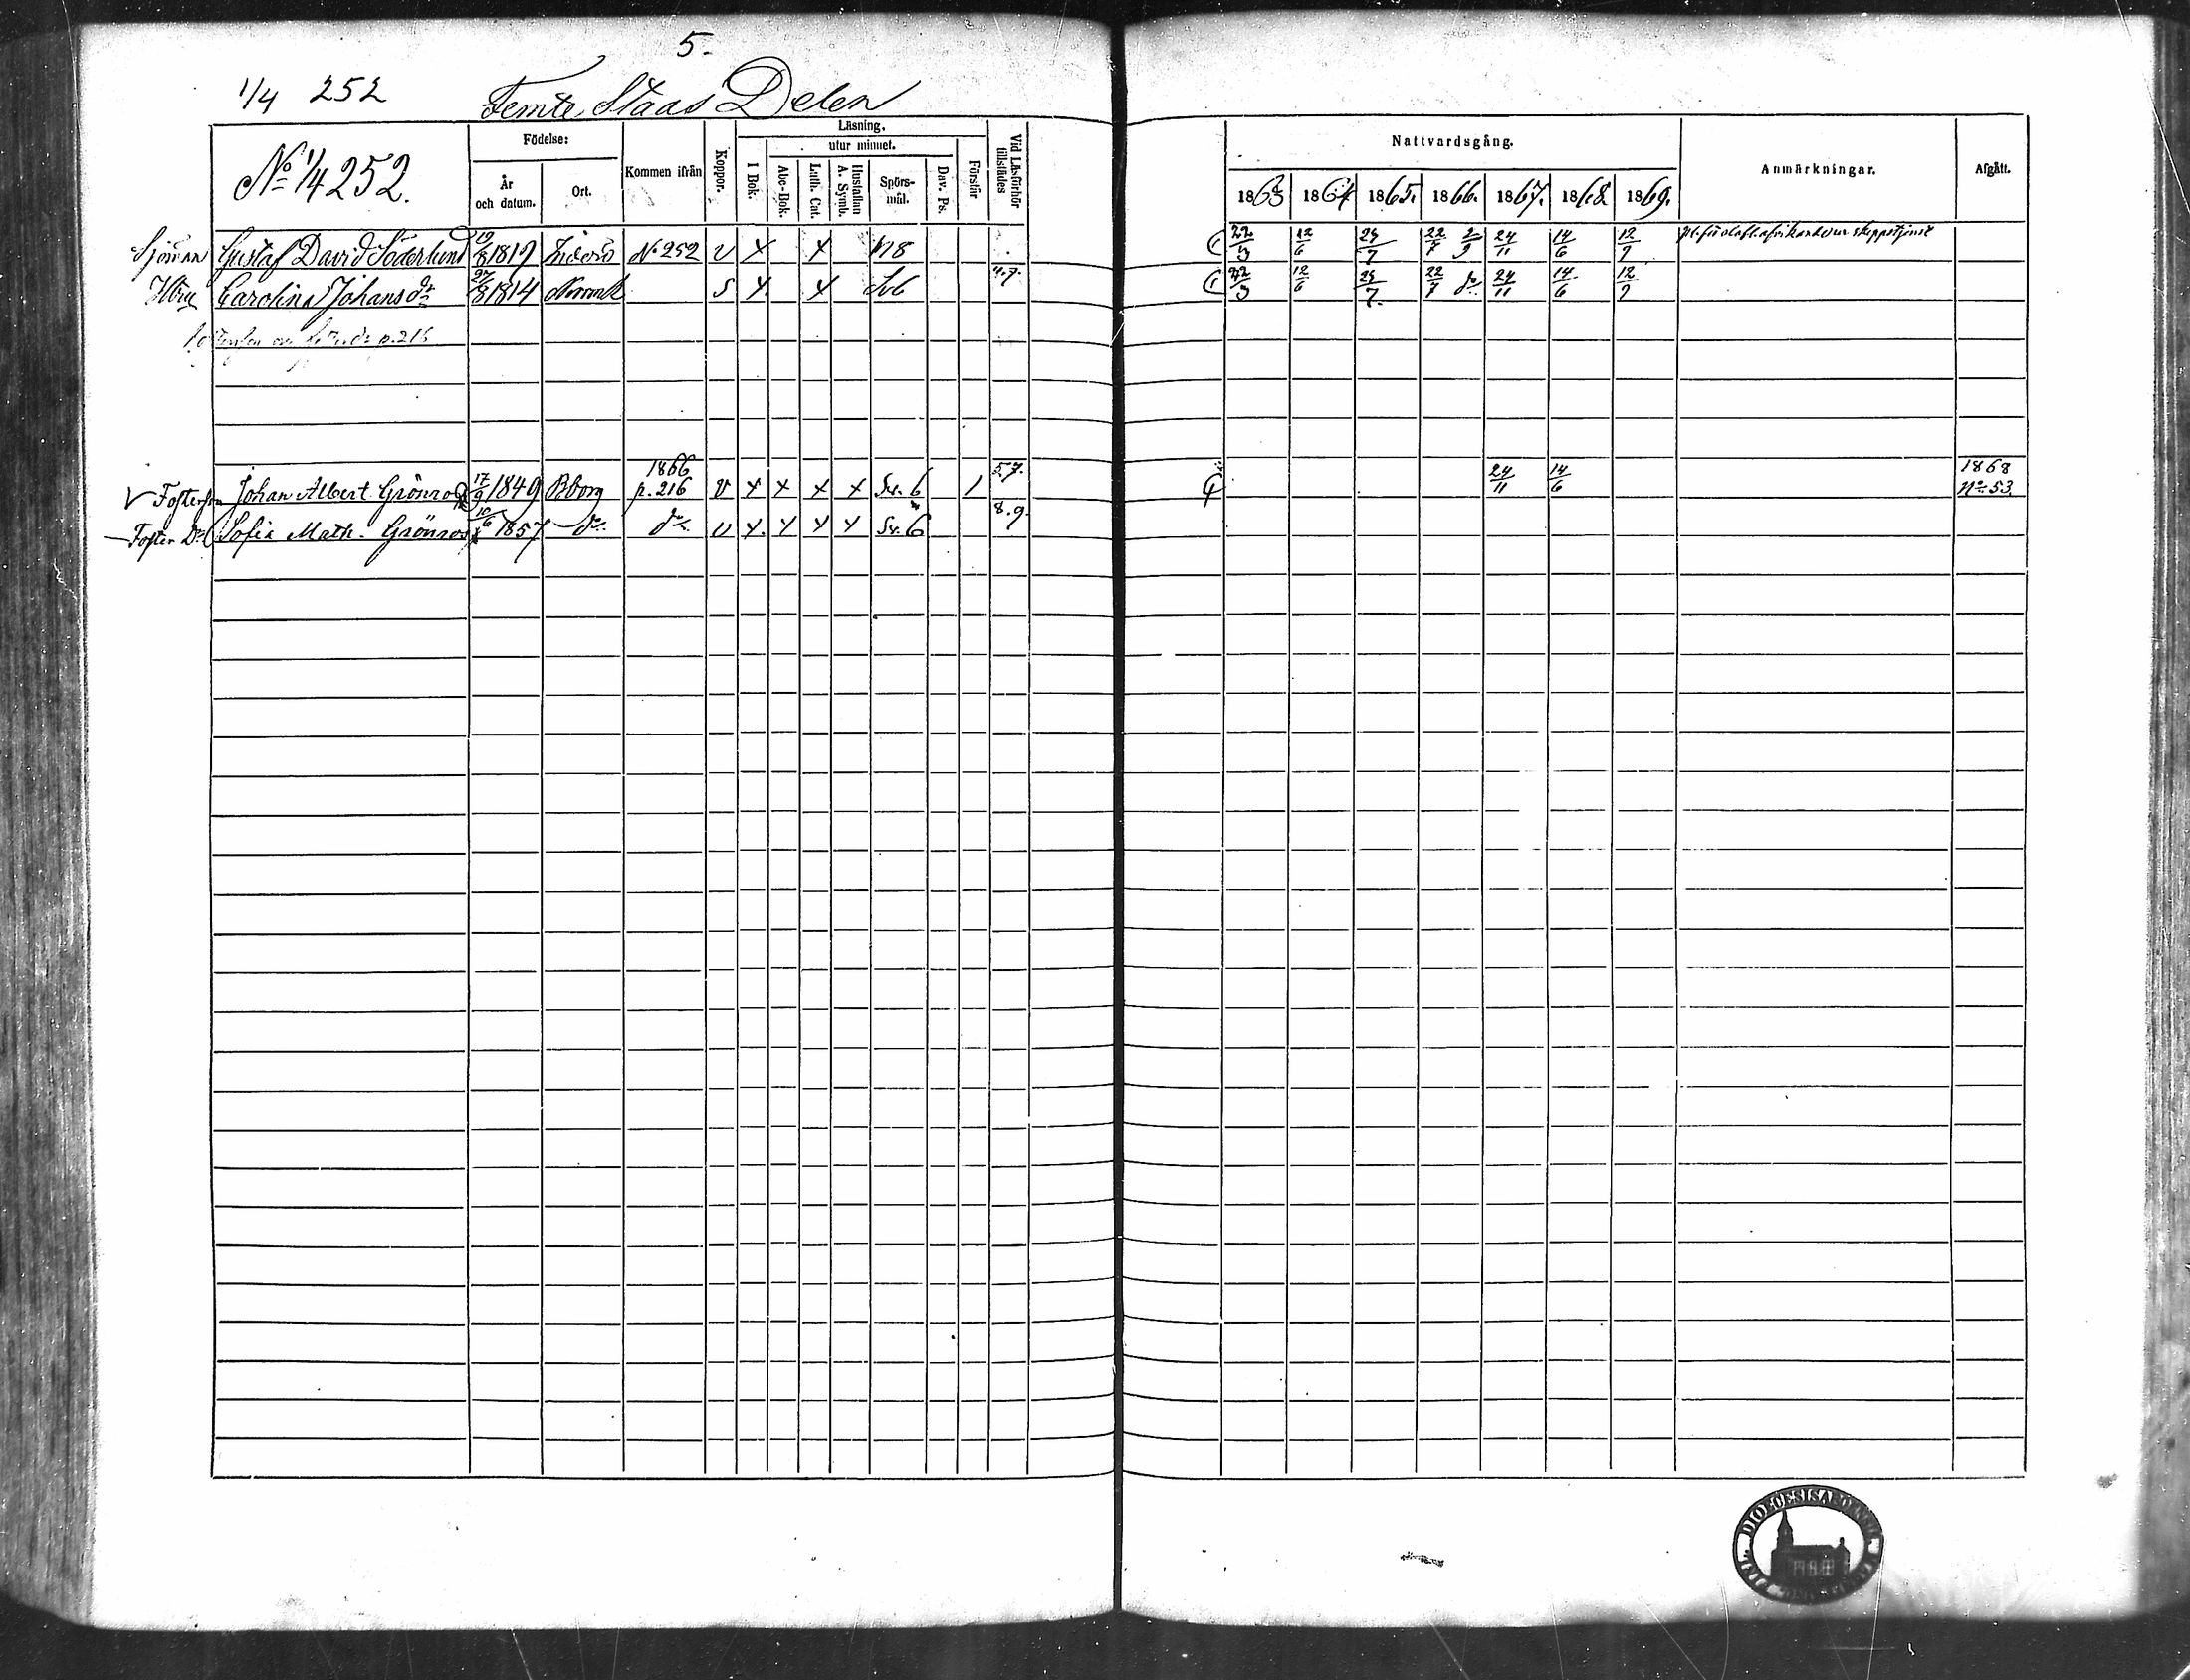 5.
1/4 252 Femte Stads Delen
Födelse: Läsning. Nattvardsgång.
utur minnet.
No 1/4 252. År och datum. Ort. Kommen ifrån Koppor. I Bok. Abc-Bok. Luth. Cat. Hustaflan A. Symb. Spörs-mål. Dav. Ps. Förstår Vid Läsförhör tillstädes 1863 1864 1865. 1866. 1867. 1868 1869. Anmärkningar. Afgått.
Sjöman Gustaf David Söderlund 1819 No 252 v x x n 8 22/3 12/6 22/7 24/11 14/6 12/7
Hstru Carolina Johans dr 1814 s x x 22/3 12/6 22/7 do 24/11 14/6 12/7
p. 216
1866 5.7. 1868
v Fosterson Johan Albert Grönroos 17/9 1849 Bborg p. 216 v x x x x Sv. 6 1 24/11 14/6 No 53.
8.9.
Foster Dr Sofia Math. Grönroos 10/6 1857 do do v x x x x Sv. 6
DIOECESIS ABOENSIS